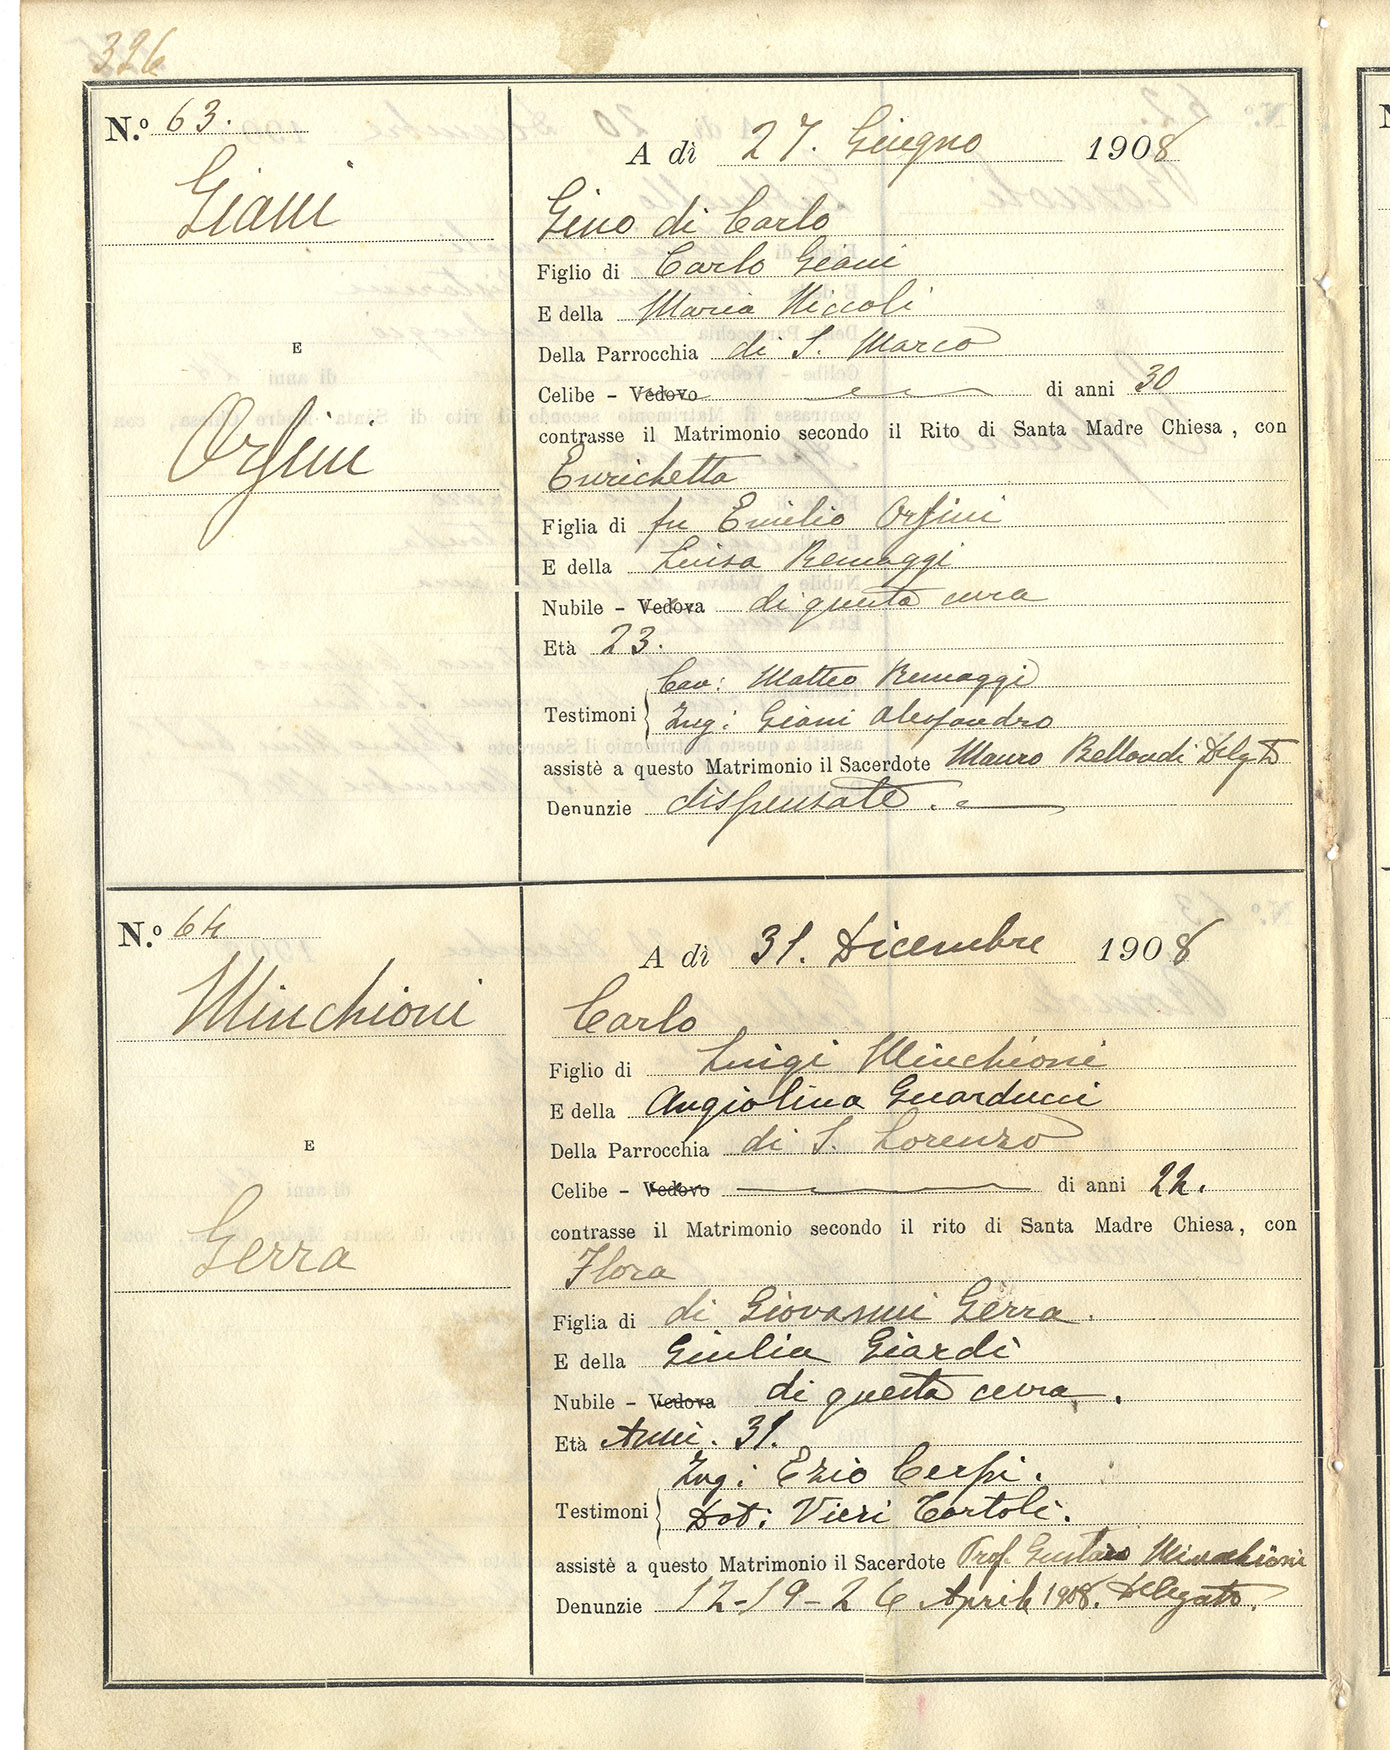 326
N.º 63.
Giani
E
Orsini
A dì 27. Giugno 1908
Gino di Carlo
Figlio di Carlo Giani
E della Maria Niccoli
Della Parrocchia di S. Marco
Celibe – Vedovo di anni 30
contrasse il Matrimonio secondo il Rito di Santa Madre Chiesa, con
Enrichetta
Figlia di fu Emilio Orsini
E della Luisa Remaggi
Nubile – Vedova di questa cura
Età 23.
Cav: Matteo Remaggi
Testimoni
Ing: Giani Alessandro
assistè a questo Matrimonio il Sacerdote Mauro Bellondi Delgto
Denunzie dispensate.
N.º 64
Minchioni
E
Gerra
A dì 31. Dicembre 1908
Carlo
Figlio di Luigi Minchioni
E della Angiolina Guarducci
Della Parrocchia di S. Lorenzo
Celibe – Vedovo di anni 22.
contrasse il Matrimonio secondo il rito di Santa Madre Chiesa, con
Flora
Figlia di di Giovanni Gerra.
E della Giulia Giardi
Nubile – Vedova di questa cura.
Età Anni. 31.
Ing: Ezio Cerpi.
Testimoni
Dot: Vieri Tortoli.
assistè a questo Matrimonio il Sacerdote Prof. Gustavo Minchioni
Denunzie 12-19-26 Aprile 1908. Delegato.